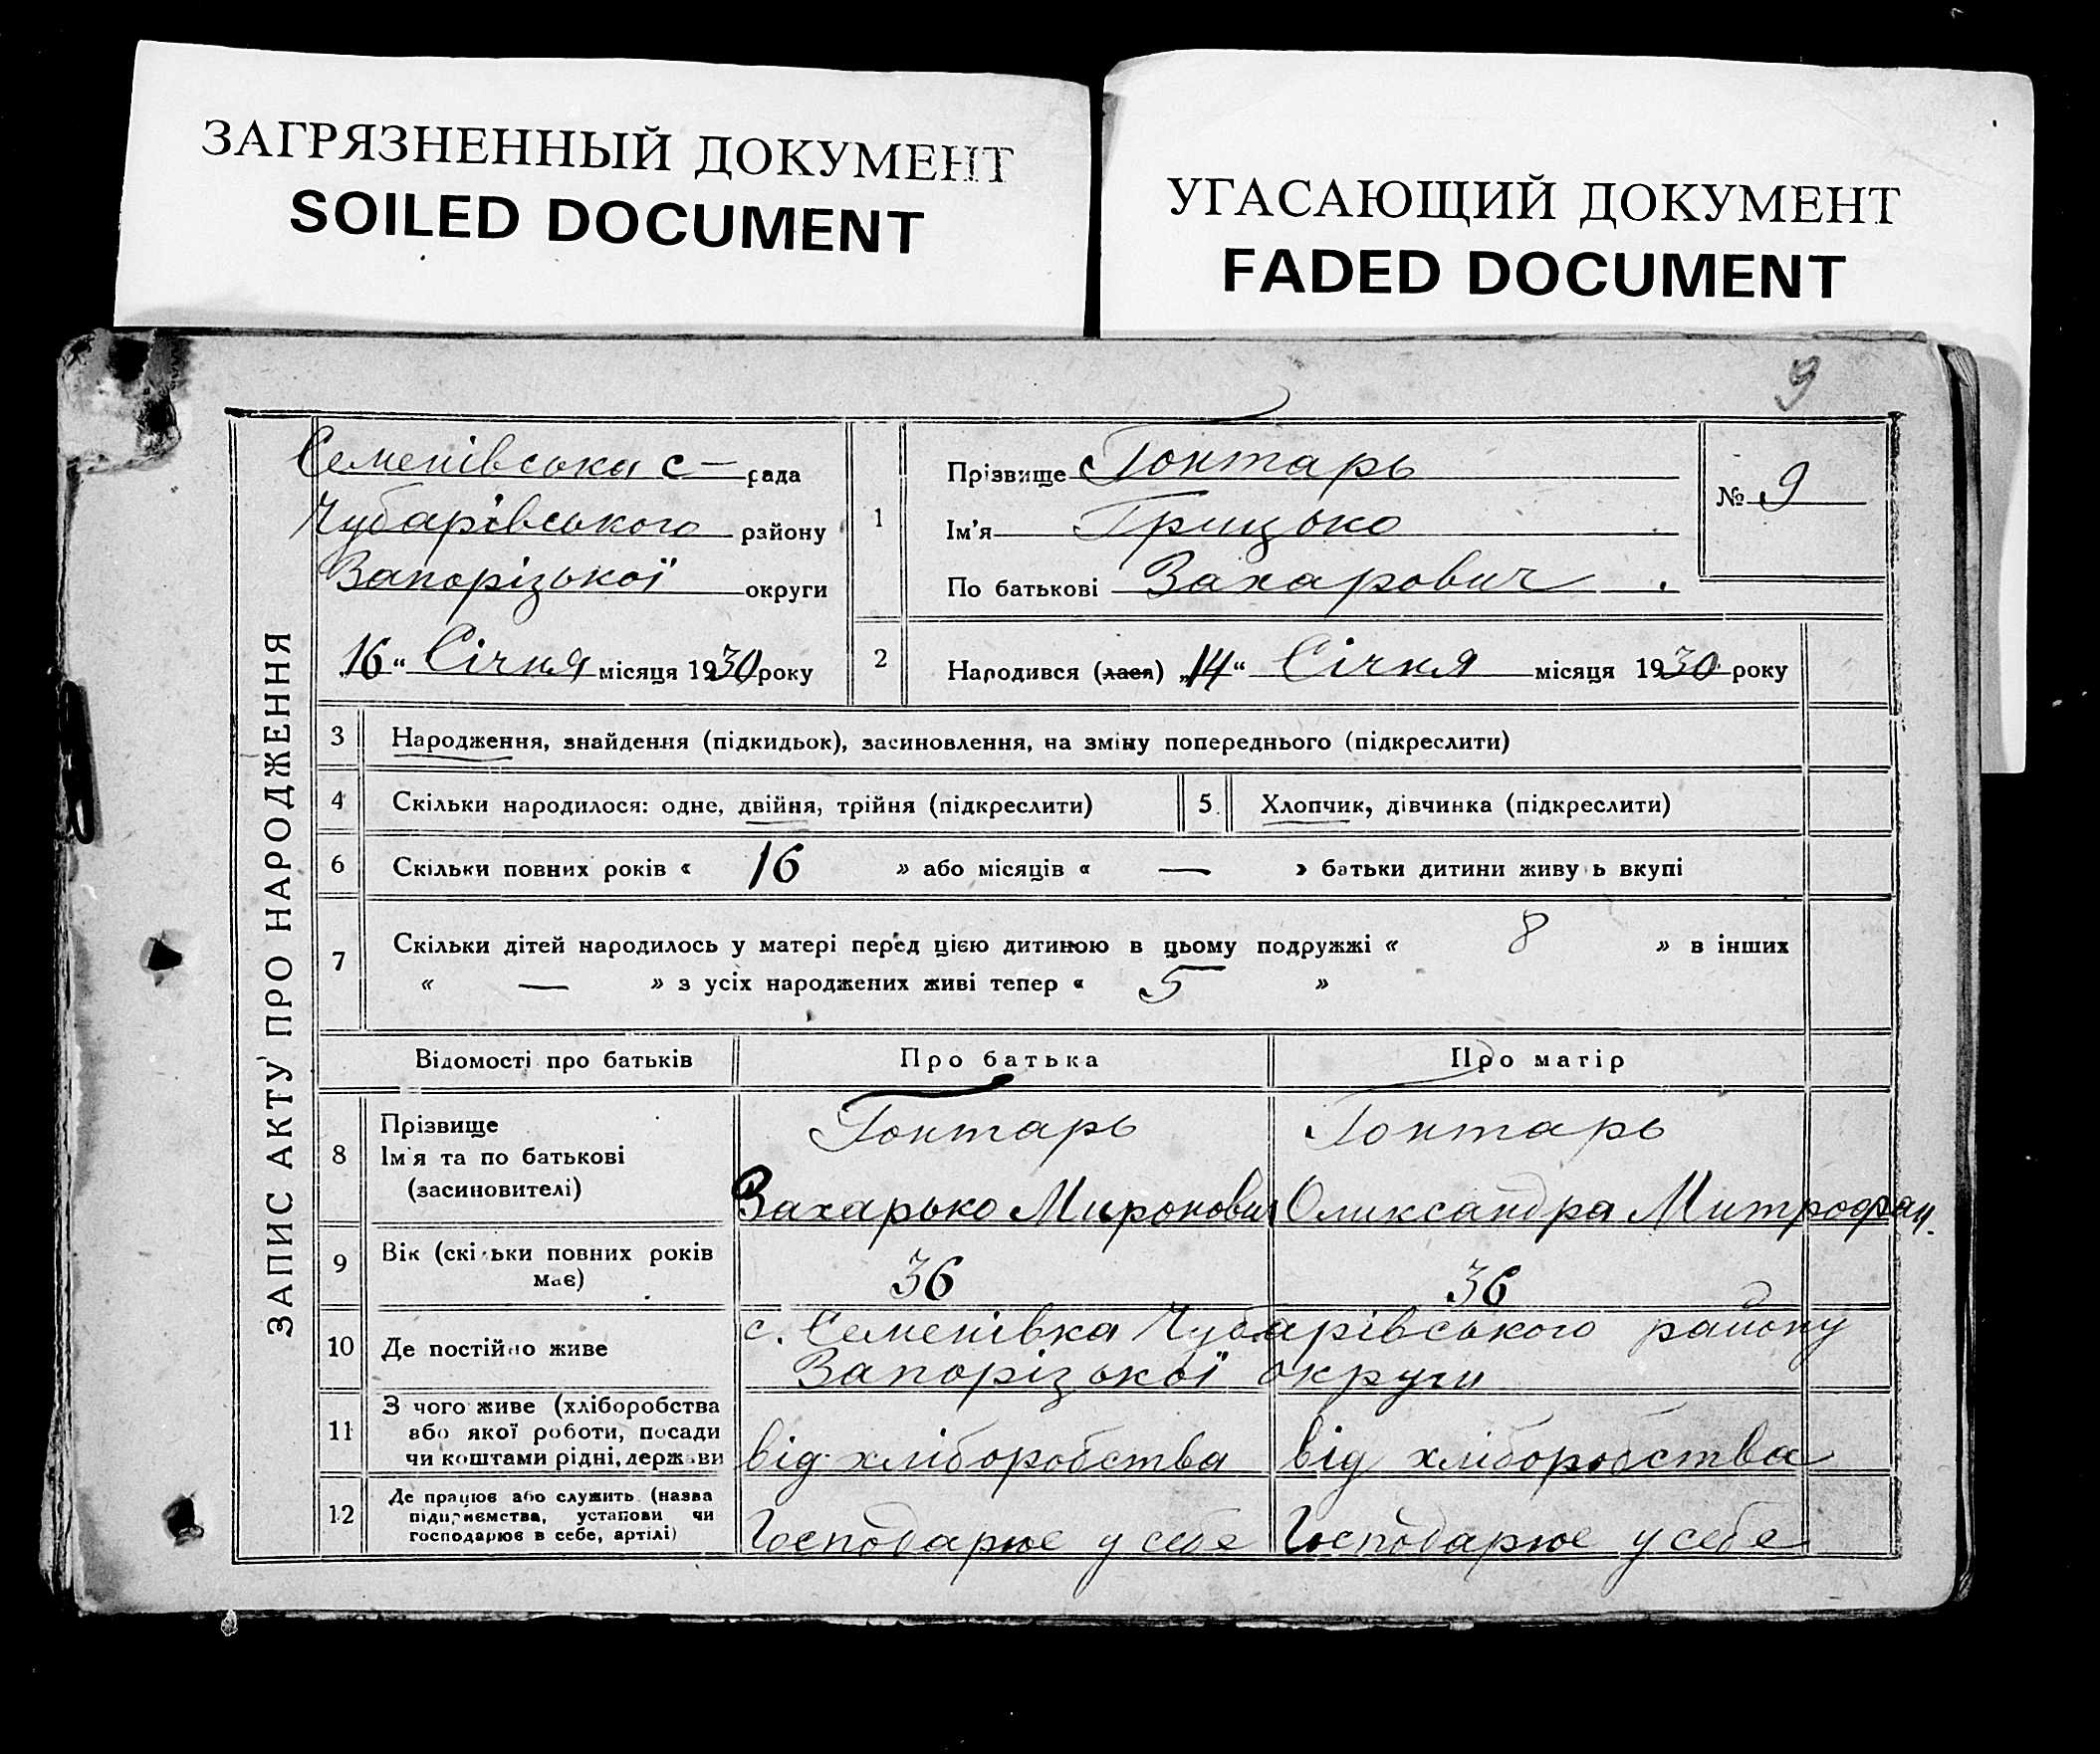 ЗАГРЯЗНЕННЫЙ ДОКУМЕНТ
SOILED DOCUMENT
УГАСАЮЩИЙ ДОКУМЕНТ
FADED DOCUMENT
9
ЗАПИС АКТУ ПРО НАРОДЖЕННЯ
Семенівська с – рада
Чубарівського району
Запорізької округи
16 „ Січня місяця 1930 року
1
Прізвище Гонтарь
Ім'я Грицько
По батькові Захарович
№ 9
2 Народився (лася) „14“ Січня місяця 1930 року
3 Народження, знайдення (підкидьок), засиновлення, на зміну попереднього (підкреслити)
4 Скільки народилося: одне, двійня, трійня (підкреслити) 5 Хлопчик, дівчинка (підкреслити)
6 Скільки повних років « 16 » або місяців « — » батьки дитини живу ь вкупі
7 Скільки дітей народилось у матері перед цією дитиною в цьому подружжі « 8 » в інших
« — » з усіх народжених живі тепер « 5 »
Відомості про батьків Про батька Про матір
8 Прізвище
Ім'я та по батькові
(засиновителі)
Гонтарь
Захарько Миронович
Гонтарь
Оликсандра Митрофан.
9 Вік (скільки повних років
має)
36 36
10 Де постійно живе
с. Семенівка Чубарівського району
Запорізької округи
11 З чого живе (хліборобства
або якої роботи, посади
чи коштами рідні, держави
від хліборобства від хліборобства
12 Де працює або служить (назва
підприємства, установи чи
господарює в себе, артілі)
Господарює у себе Господарює у себе